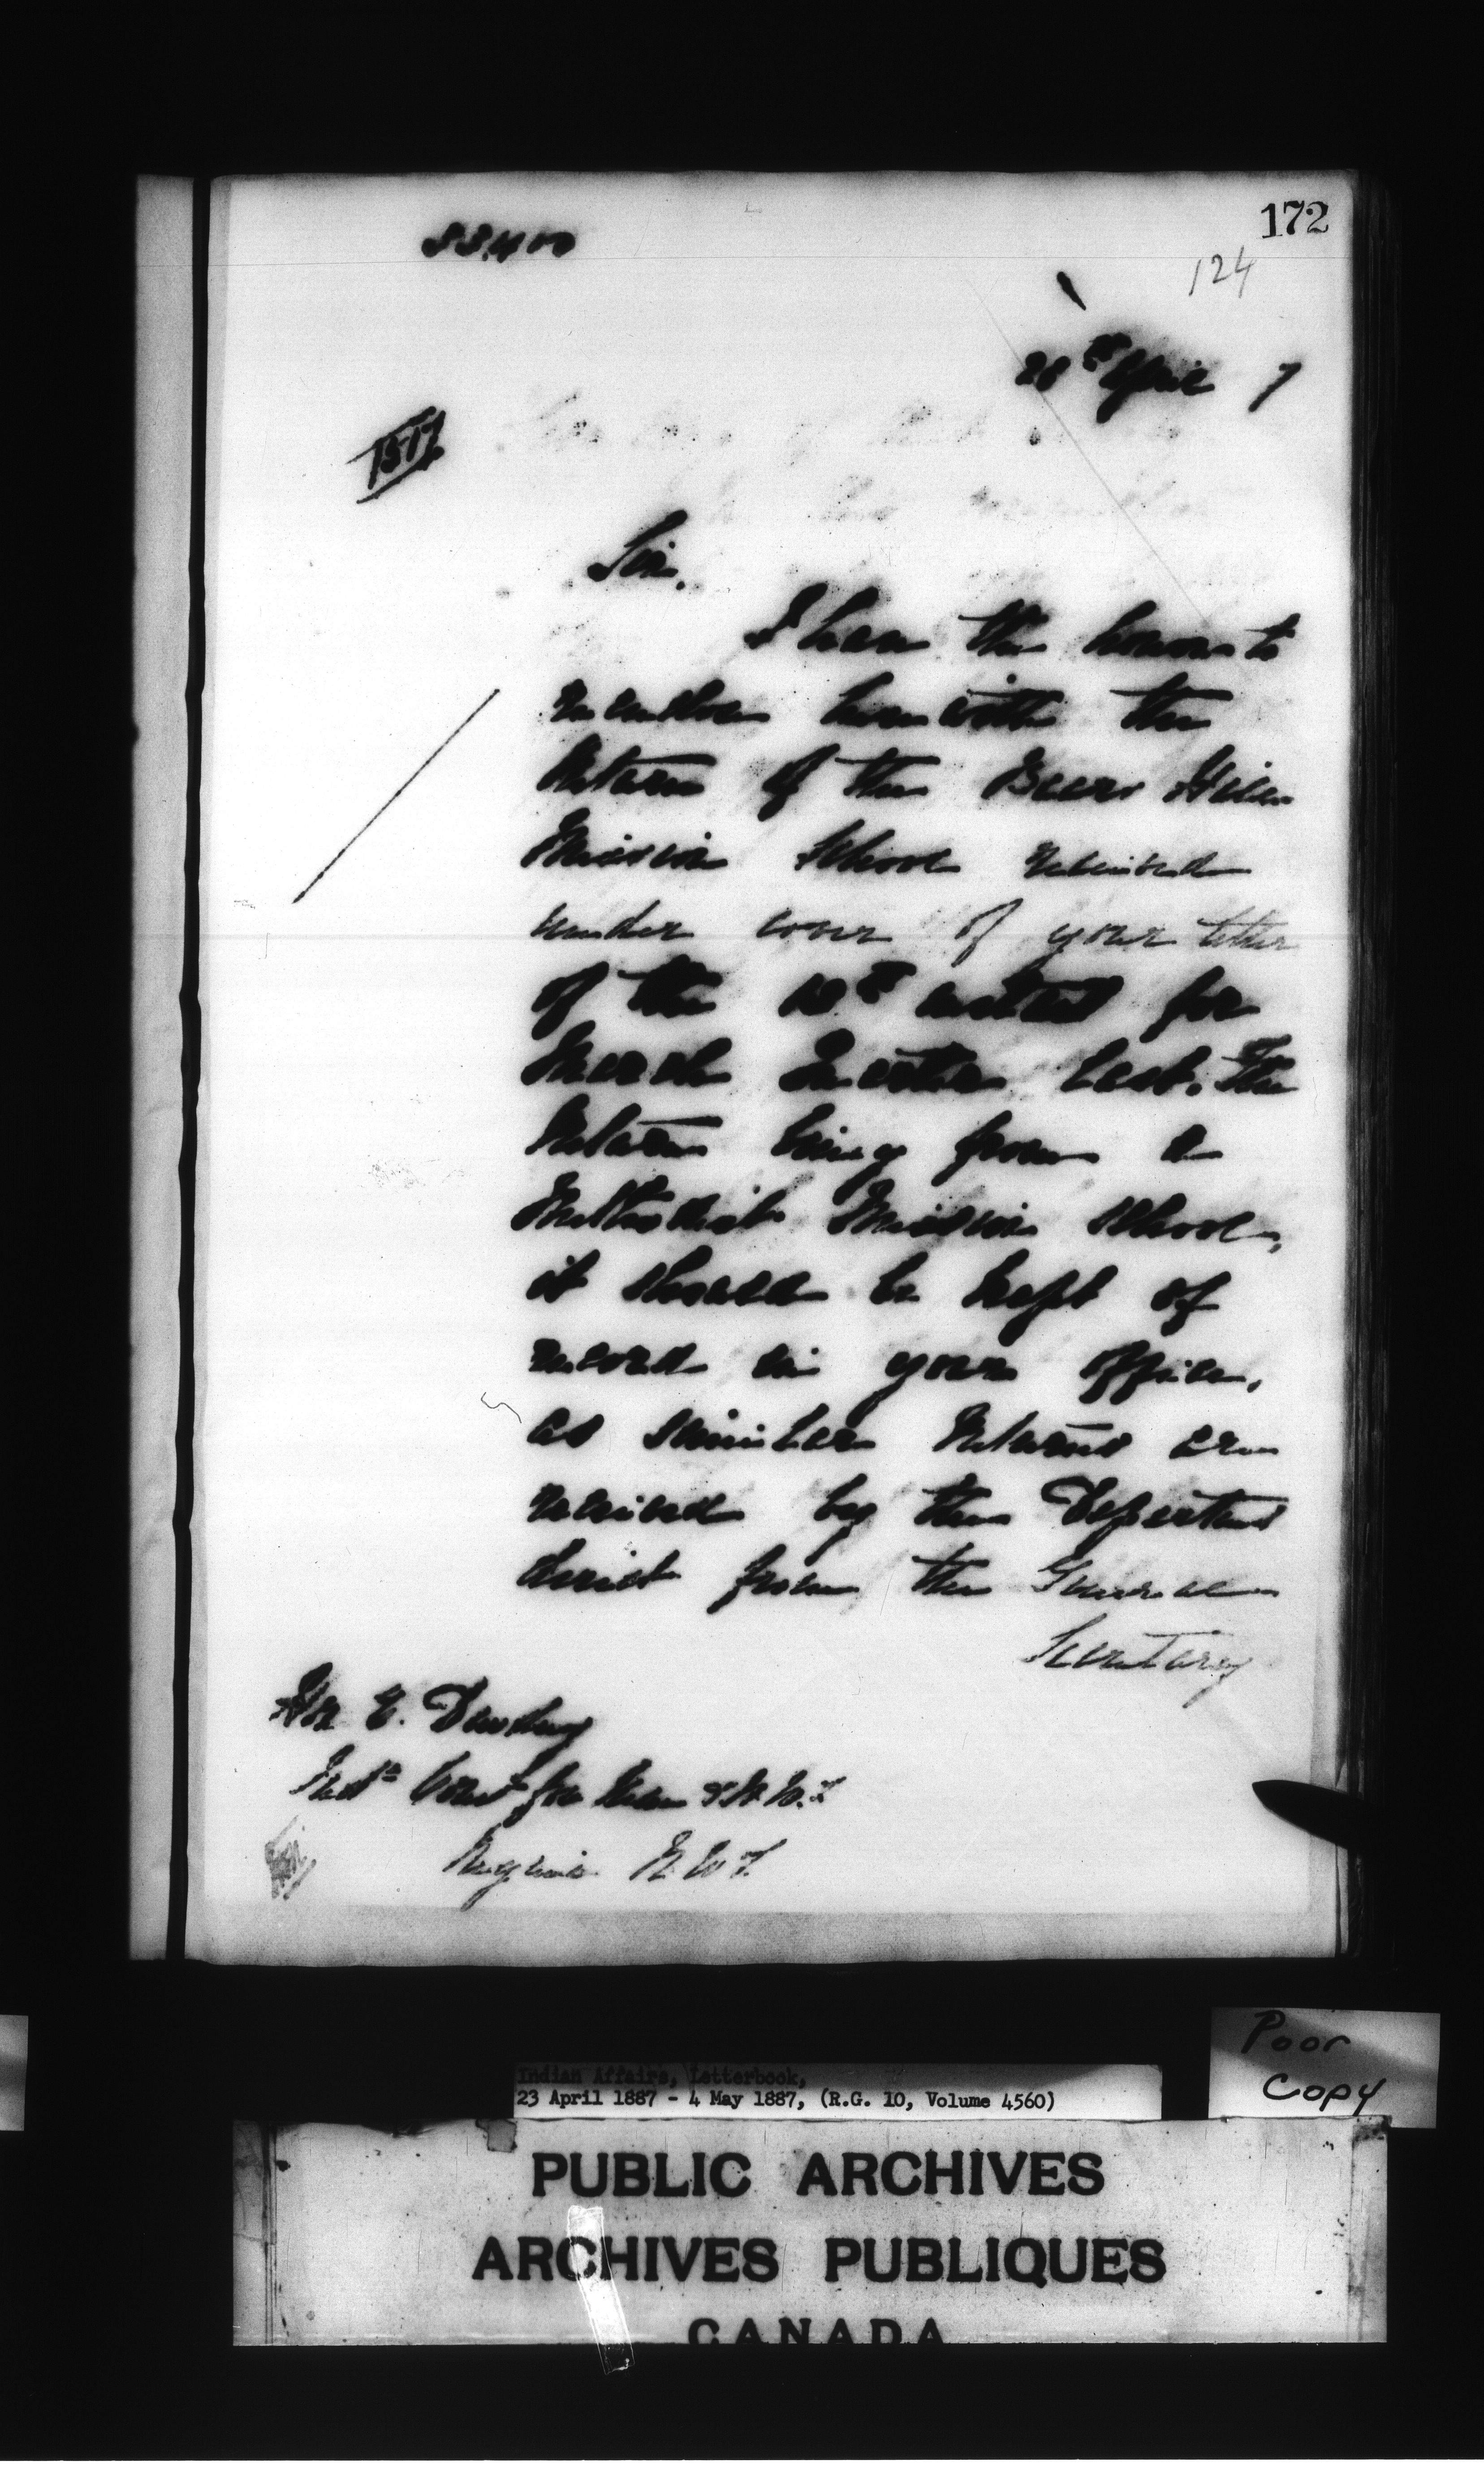 172
33,400
124
28th April 7
1517
Sir,
I have the honor to
re-enclose herewith the
Return of the Bears Hill
Mission School received
under cover of your letter
of the 18th instant for
March Quarter last. The
Return being from a
Methodist Mission School,
it should be kept of
record in your office,
as similar Returns are
received by the Departmt
direct from the General
Secretary
Hn E. Dewdney
Ind. Comr for Man & N.W.T
Regina N.W.T.
Poor
Copy
Indian Affairs, Letterbook,
23 April 1887 - 4 May 1887, (R.G. 10, Volume 4560)
PUBLIC ARCHIVES
ARCHIVES PUBLIQUES
CANADA